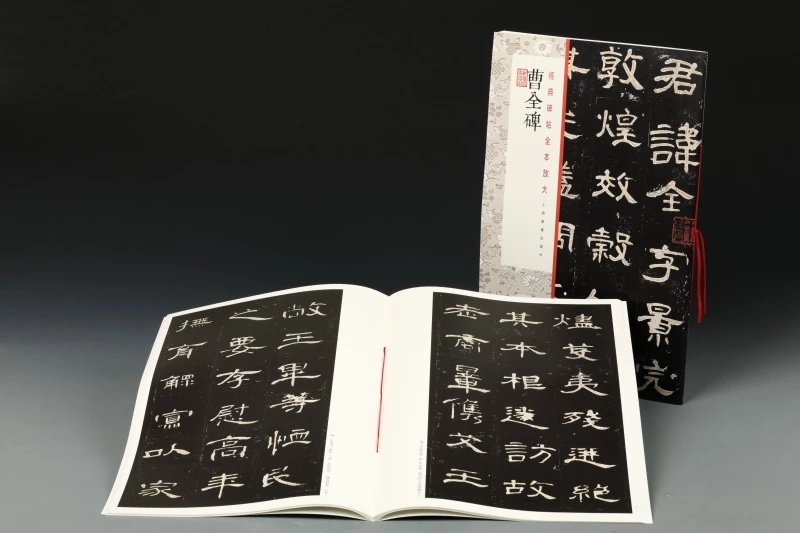 經典碑帖全本放大
曹全碑
君諱全字景完
敦煌效穀
蓋周
燼芟夷殘迸絕
其本根遂訪故
老商量儁艾王
敞王畢等恤民
之要存慰高年
撫育鰥寡以家